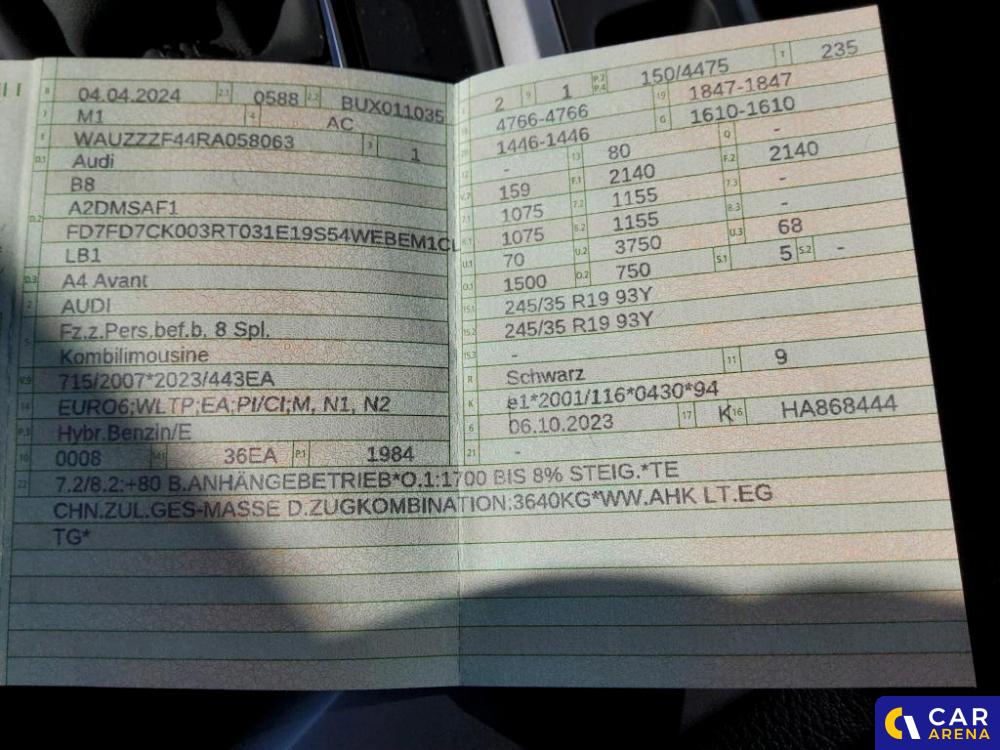 B 04.04.2024 2.1 0588 2.2 BUX011035
J M1 4 AC
E WAUZZZF44RA058063 3 1
D.1 Audi
B8
D.2 A2DMSAF1
FD7FD7CK003RT031E19S54WEBEM1CL
LB1
D.3 A4 Avant
2 AUDI
5 Fz.z.Pers.bef.b. 8 Spl.
Kombilimousine
V.9 715/2007*2023/443EA
14 EURO6;WLTP;EA;PI/CI;M, N1, N2
P.3 Hybr.Benzin/E
10 0008 14.1 36EA P.1 1984
22 7.2/8.2:+80 B.ANHÄNGEBETRIEB*O.1:1700 BIS 8% STEIG.*TE
CHN.ZUL.GES-MASSE D.ZUGKOMBINATION:3640KG*WW.AHK LT.EG
TG*
L 2 9 1 P.2 P.4 150/4475 T 235
18 4766-4766 19 1847-1847
20 1446-1446 G 1610-1610
12 - 13 80 Q -
V.7 159 F.1 2140 F.2 2140
7.1 1075 7.2 1155 7.3 -
8.1 1075 8.2 1155 8.3 -
U.1 70 U.2 3750 U.3 68
O.1 1500 O.2 750 S.1 5 S.2 -
15.1 245/35 R19 93Y
15.2 245/35 R19 93Y
15.3 -
R Schwarz 11 9
K e1*2001/116*0430*94
6 06.10.2023 17 K 16 HA868444
21 -
CAR
ARENA